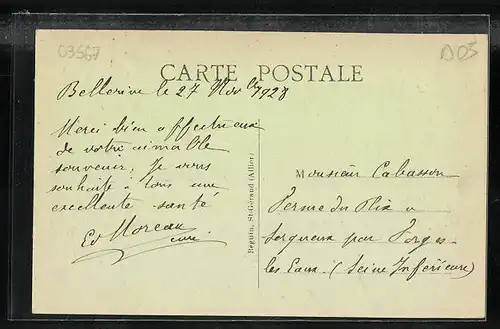 03567
ADS
CARTE POSTALE
Bellerive le 27 Nov bre 1928
Merci bien affectueux
de votre aimable
souvenir, je vous
souhaite à tous une
excellente santé
Ed Moreau
curé
Béguin, St-Gérand (Allier)
Monsieur Cabasson
Ferme du Plix à
Serqueux par Forges-
les-Eaux (Seine Inférieure)